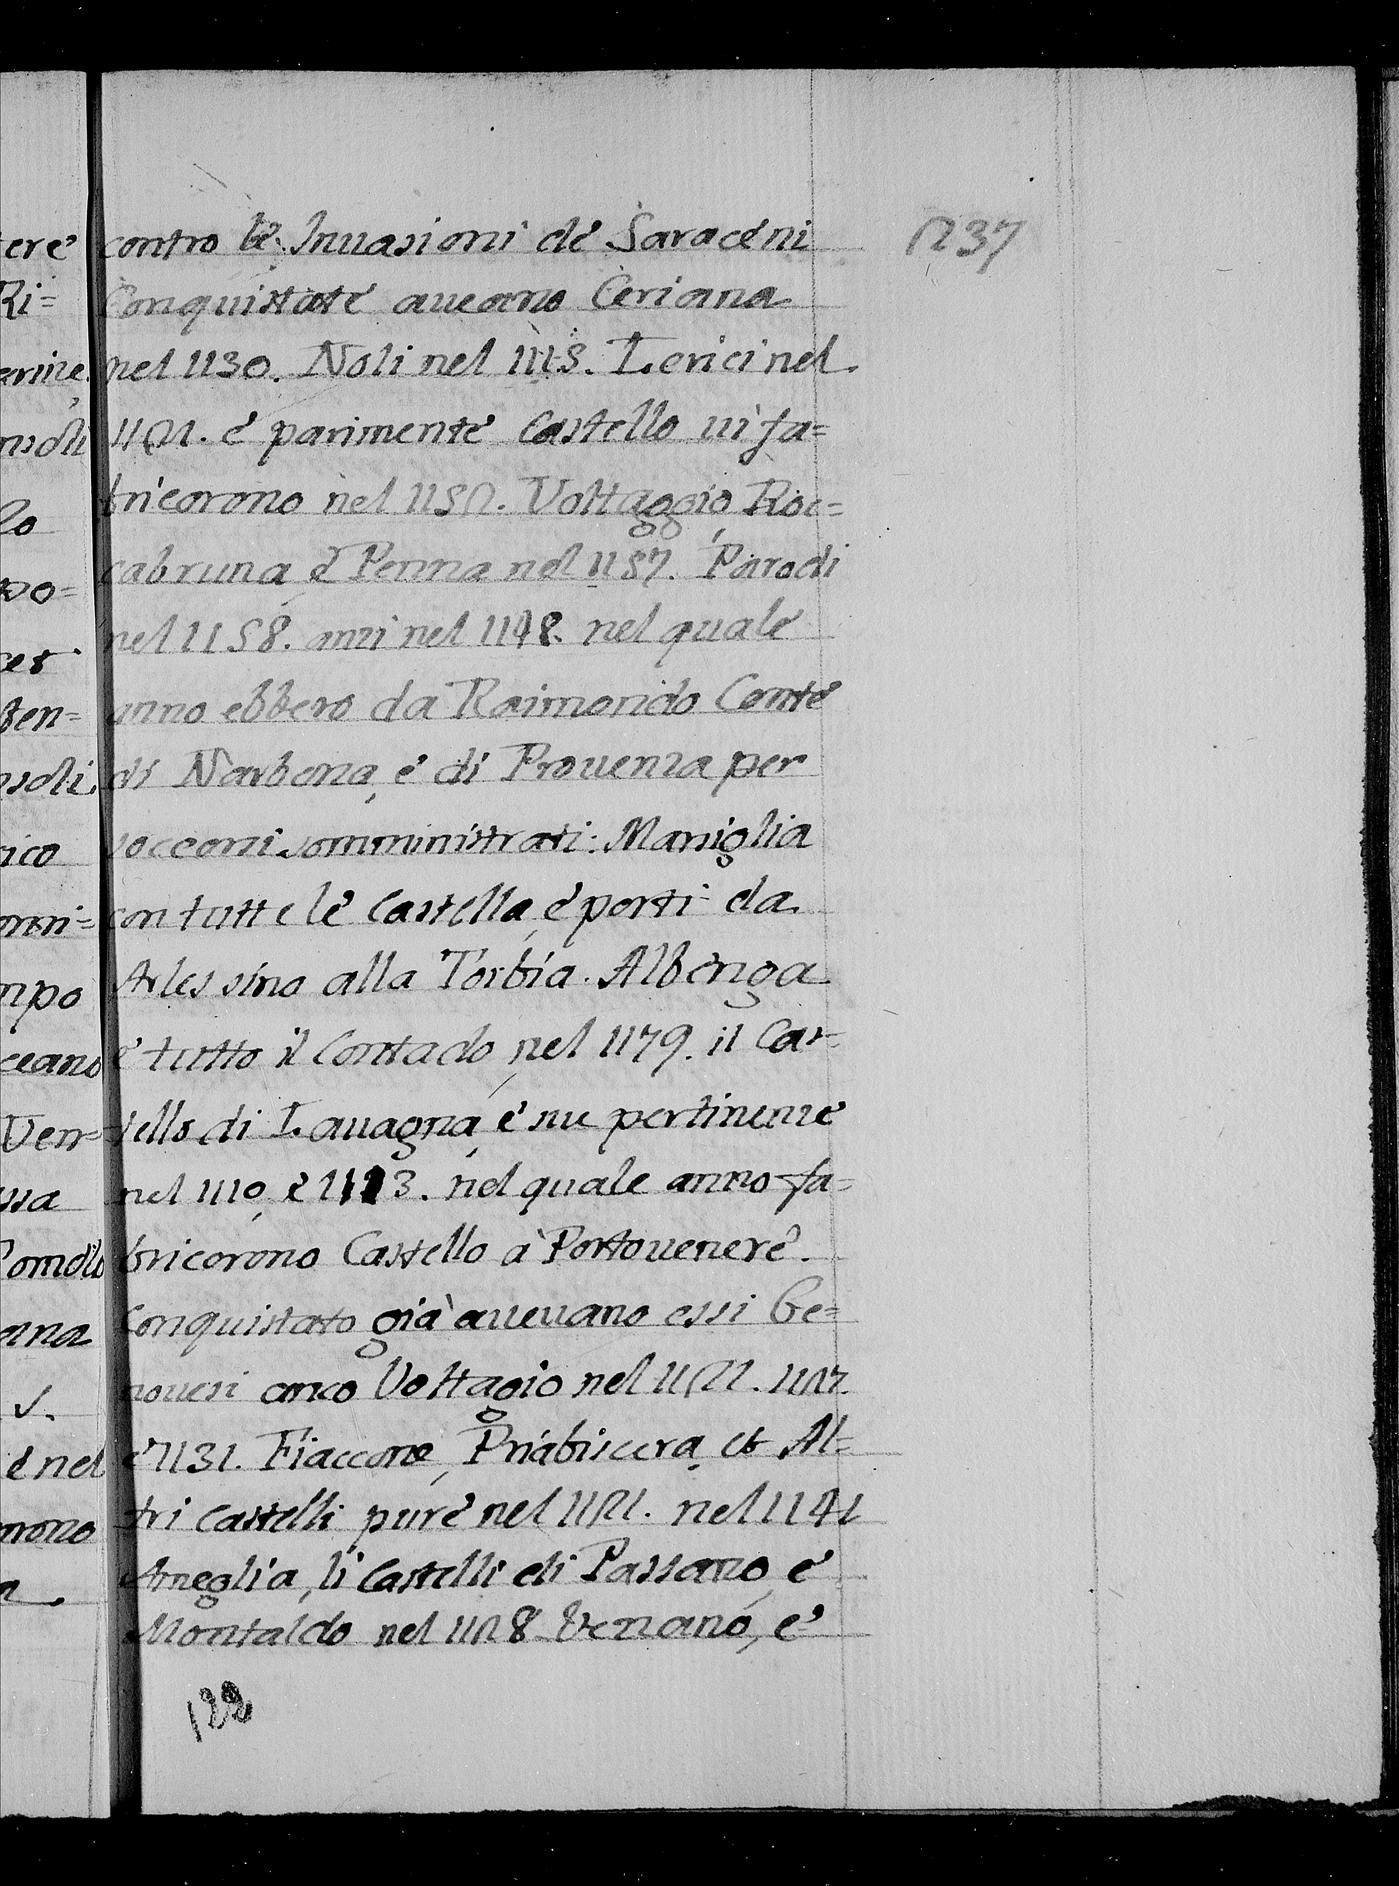 contro le Inuasioni de Saraceni
1237
Conquistate aueano Ceriana
nel 1130. Noli nel 1115. Lerici nel
1121. è parimente Castello ui fa=
bricorono nel 1152. Voltaggio, Roc=
cabruna, è Penna nel 1157. Parodi
nel 1158. anzi nel 1148. nel quale
anno ebbero da Raimondo Conte
di Narbona, è di Prouenza per
soccorsi somministrati: Marsiglia
con tutte le Castella, è porti da
Arles sino alla Torbia. Albenga
è tutto il Contado, nel 1179. il Cas=
tello di Lauagna, è sue pertinenze
nel 1110, è 1113. nel quale anno fa=
bricorono Castello à Portouenere.
Conquistato già aueuano essi Ge=
nouesi anco Voltagio nel 1121. 1127.
è 1131. Fiaccone, Priabiscera, et Al=
tri Castelli pure nel 1121. nel 1141
Ameglia, li Castelli di Passano, è
Montaldo nel 1128 Vernano, è
122